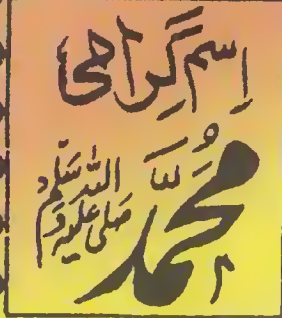 اِسم گِرامی
مُحَمَّد صَلَّى اللّٰه عَلَيْهِ وَسَلَّم